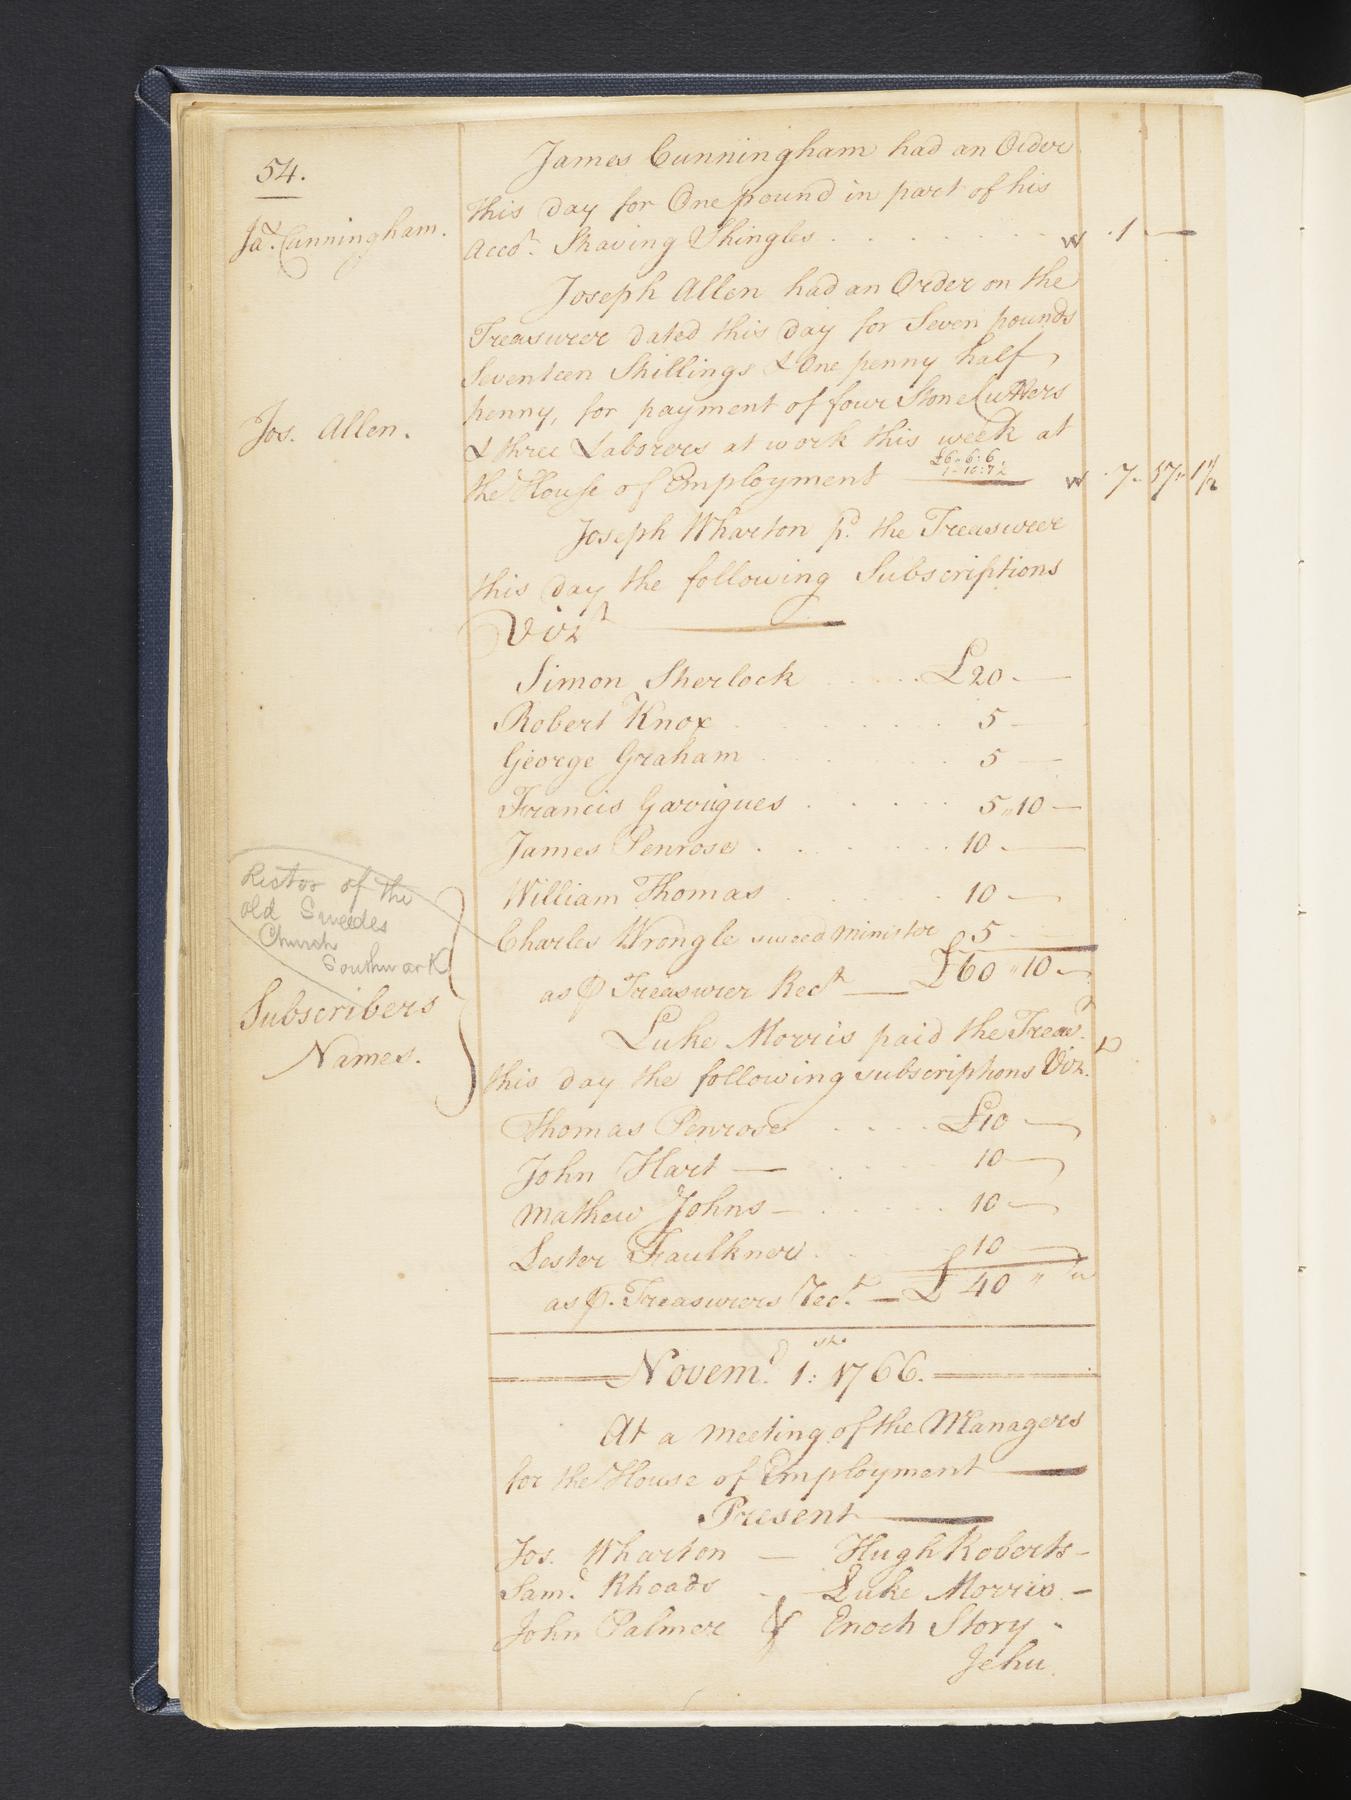 54.
Ja.s Cunningham.
James Cunningham had an Order
this day for One pound in part of his
acco.t Shaving Shingles . . . . . . . w .1 —
Joseph Allen had an Order on the
Treasurer dated this day for Seven pounds
Seventeen Shillings & One penny half
Jos. Allen.
penny, for payment of four Stone Cutters
& three Laborers at work this week at
£6..6:6
1..10:7½
the House of Employment — w .7.. 17.. 1½
Joseph Wharton p.d the Treasurer
this day the following Subscriptions
Viz.t
Simon Sherlock . . . . . £20. —
Robert Knox . . . . . . 5 —
George Graham . . . . . 5 —
Francis Garrigues . . . . . 5,,10 —
James Penrose . . . . . . 10. —
William Thomas . . . . . 10 —
Rector of the
old Swedes
Church
Southwark
Charles Wrangle sweed Minister 5 —
as ⅌ Treasurer Rec.t — £60 ,,10 —
Subscribers
Names.
Luke Morris paid the Treas.r
this day the following subscriptions Viz.t
Thomas Penrose . . . . £10 —
John Hart — . . . . 10 —
Mathew Johns — . . . . . 10 —
Lester Faulkner . . . 10 —
as ⅌. Treasurers Rec.t — £ 40 ,, ,,
Novem.r 1:st 1766.
At a Meeting of the Managers
for the House of Employment —
Present —
Jos. Wharton — Hugh Roberts —
Sam.l Rhoads - Luke Morris —
John Palmer & Enoch Story -
Jehu